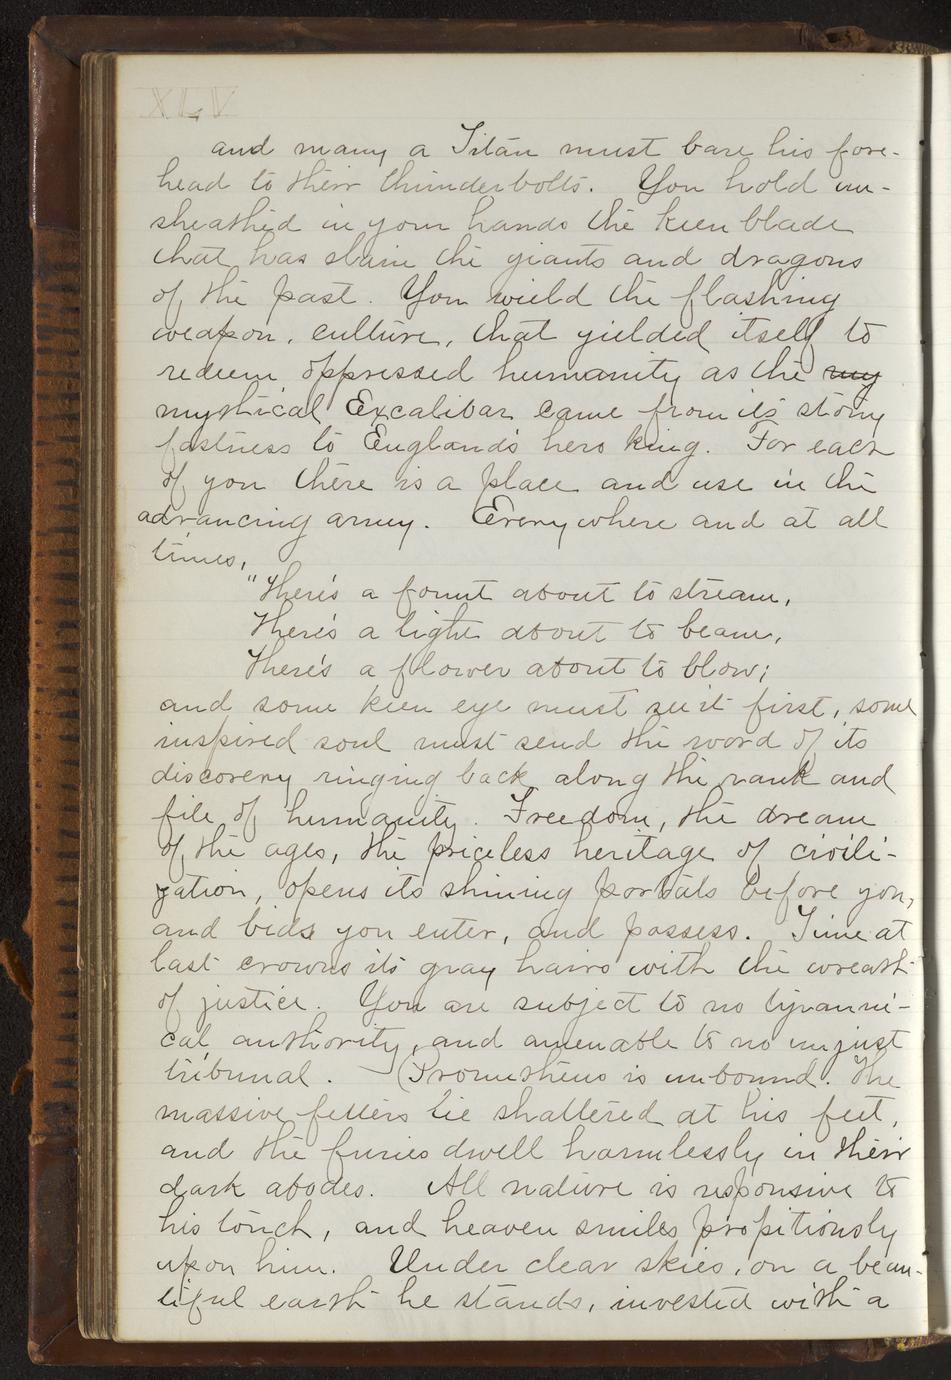 XLV
and many a Titan must bare his fore-
head to their thunderbolts. You hold un-
sheathed in your hands the keen blade
that has slain the giants and dragons
of the past. You wield the flashing
weapon, culture, that yielded itself to
redeem oppressed humanity as the my
mystical Excalibar came from its stony
fastness to England's hero king. For each
of you there is a place and use in the
advancing army. Everywhere and at all
times,
"There's a fount about to stream,
There's a light about to beam,
There's a flower about to blow;
and some keen eye must see it first, some
inspired soul must send the word of its
discovery ringing back along the rank and
file of humanity. Freedom, the dream
of the ages, the priceless heritage of civili-
zation, opens its shining portals before you,
and bids you enter, and possess. Time at
last crowns its gray hairs with the wreath
of justice. You are subject to no tyranni-
cal authority, and amenable to no unjust
tribunal. Prometheus is unbound. The
massive fetters lie shattered at his feet,
and the furies dwell harmlessly in their
dark abodes. All nature is responsive to
his touch, and heaven smiles propitiously
upon him. Under clear skies, on a beau-
tiful earth he stands, invested with a